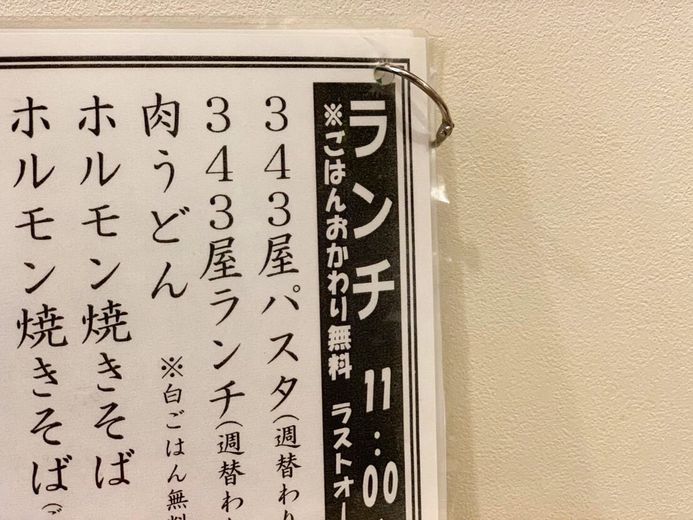 ランチ 11:00
※ごはんおかわり無料 ラストオー
343屋パスタ(週替わり
343屋ランチ(週替わ
肉うどん ※白ごはん無料
ホルモン焼きそば
ホルモン焼きそば(ご